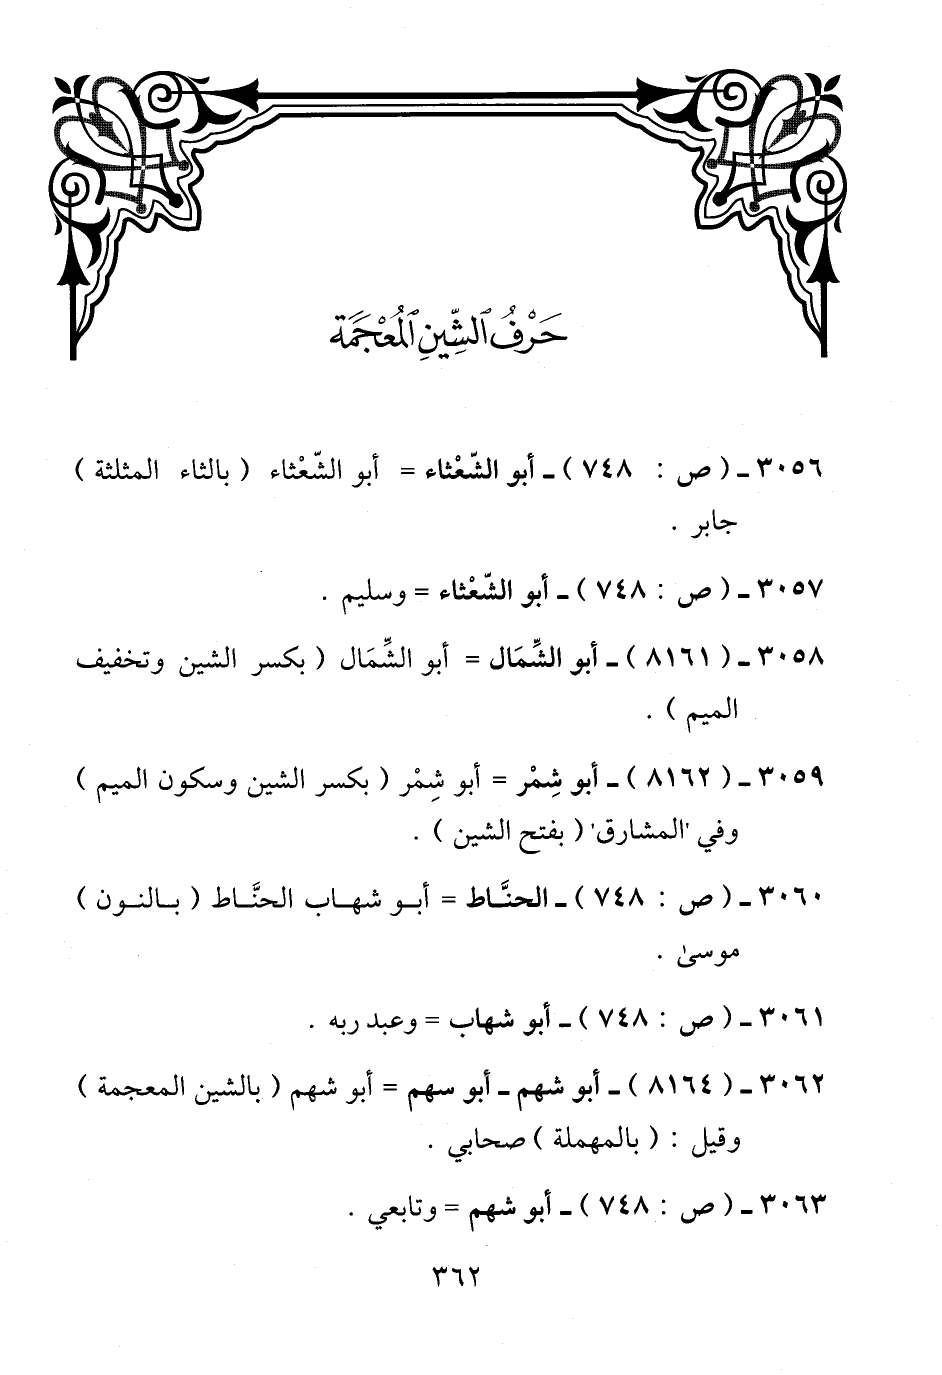 حَرْفُ ٱلشِّينِ ٱلْمُعْجَمَة
٣٠٥٦ ـ ( ص : ٧٤٨ ) ـ أبو الشّعْثاء = أبو الشّعْثاء ( بالثاء المثلثة )
جابر .
٣٠٥٧ ـ ( ص : ٧٤٨ ) ـ أبو الشّعْثاء = وسليم .
٣٠٥٨ ـ ( ٨١٦١ ) ـ أبو الشِّمَال = أبو الشِّمَال ( بكسر الشين وتخفيف
الميم ) .
٣٠٥٩ ـ ( ٨١٦٢ ) ـ أبو شِمْر = أبو شِمْر ( بكسر الشين وسكون الميم )
وفي 'المشارق' ( بفتح الشين ) .
٣٠٦٠ ـ ( ص : ٧٤٨ ) ـ الحنَّاط = أبو شهاب الحنَّاط ( بالنون )
موسىٰ .
٣٠٦١ ـ ( ص : ٧٤٨ ) ـ أبو شهاب = وعبد ربه .
٣٠٦٢ ـ ( ٨١٦٤ ) ـ أبو شهم ـ أبو سهم = أبو شهم ( بالشين المعجمة )
وقيل : ( بالمهملة ) صحابي .
٣٠٦٣ ـ ( ص : ٧٤٨ ) ـ أبو شهم = وتابعي .
٣٦٢